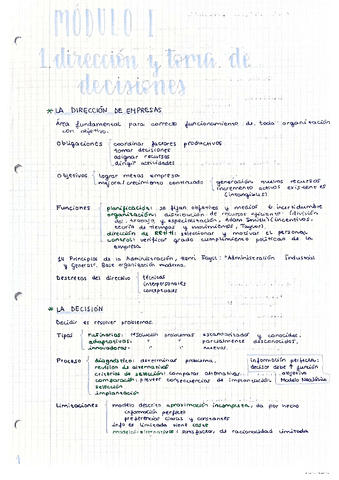 MÓDULO I
1. dirección y toma de
decisiones
* LA DIRECCIÓN DE EMPRESAS
Área fundamental para correcto funcionamiento de toda organización
con objetivo.
Obligaciones coordinar factores productivos
tomar decisiones
asignar recursos
dirigir actividades
Objetivos lograr metas empresa
mejora/crecimiento continuado generación nuevos recursos
incremento activos existentes
(intangibles)
Funciones planificación: se fijan objetivos y medios incertidumbre
organización: distribución de recursos eficiente (división
de trabajo y especialización, Adam Smith) (incentivos,
teoría de tiempos y movimientos, Taylor).
dirección de RRHH: seleccionar y motivar el personal
control: verificar grado cumplimiento políticas de la
empresa.
14 Principios de la Administración, Henri Fayol: "Administración Industrial
y General". Base organización moderna.
Destrezas del directivo técnicas
interpersonales
conceptuales
* LA DECISIÓN
Decidir es resolver problemas.
Tipos rutinarias: resolución problemas estandarizados y conocidos.
adaptativas: " " parcialmente desconocidos.
innovadoras: " " nuevos.
Proceso diagnóstico: determinar problema.
revisión de alternativas
criterios de selección: comparar alternativas
comparación: prever consecuencias de implantación
selección
implantación
información perfecta:
decisor debe ↑ función
objetivo
Modelo Neoclásico
Limitaciones modelo descrito aproximación incompleta, da por hecho
información perfecta
preferencias claras y constantes
info es limitada tiene coste
modelos alternativos: satisfactor, de racionalidad limitada
1